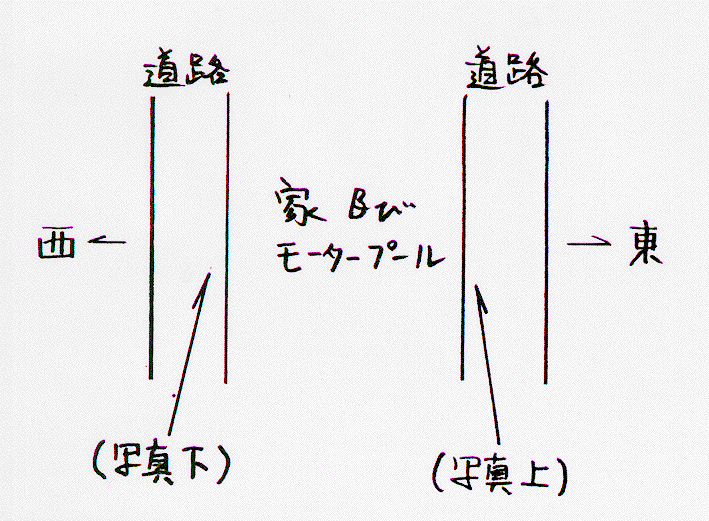 道路
道路
家及び
モータープール
西
東
(写真下)
(写真上)